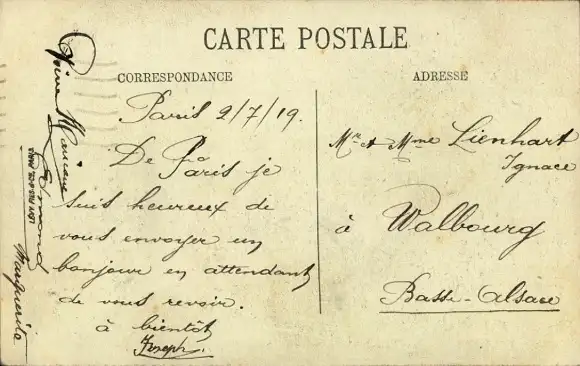 CARTE POSTALE
CORRESPONDANCE
ADRESSE
Paris 2/7/19.
De Paris je
suis heureux de
vous envoyer un
bonjour en attendant
de vous revoir.
à bientôt
Joseph.
Mr et Mme Lienhart
Ignace
à Walbourg
Basse-Alsace
Marguerite